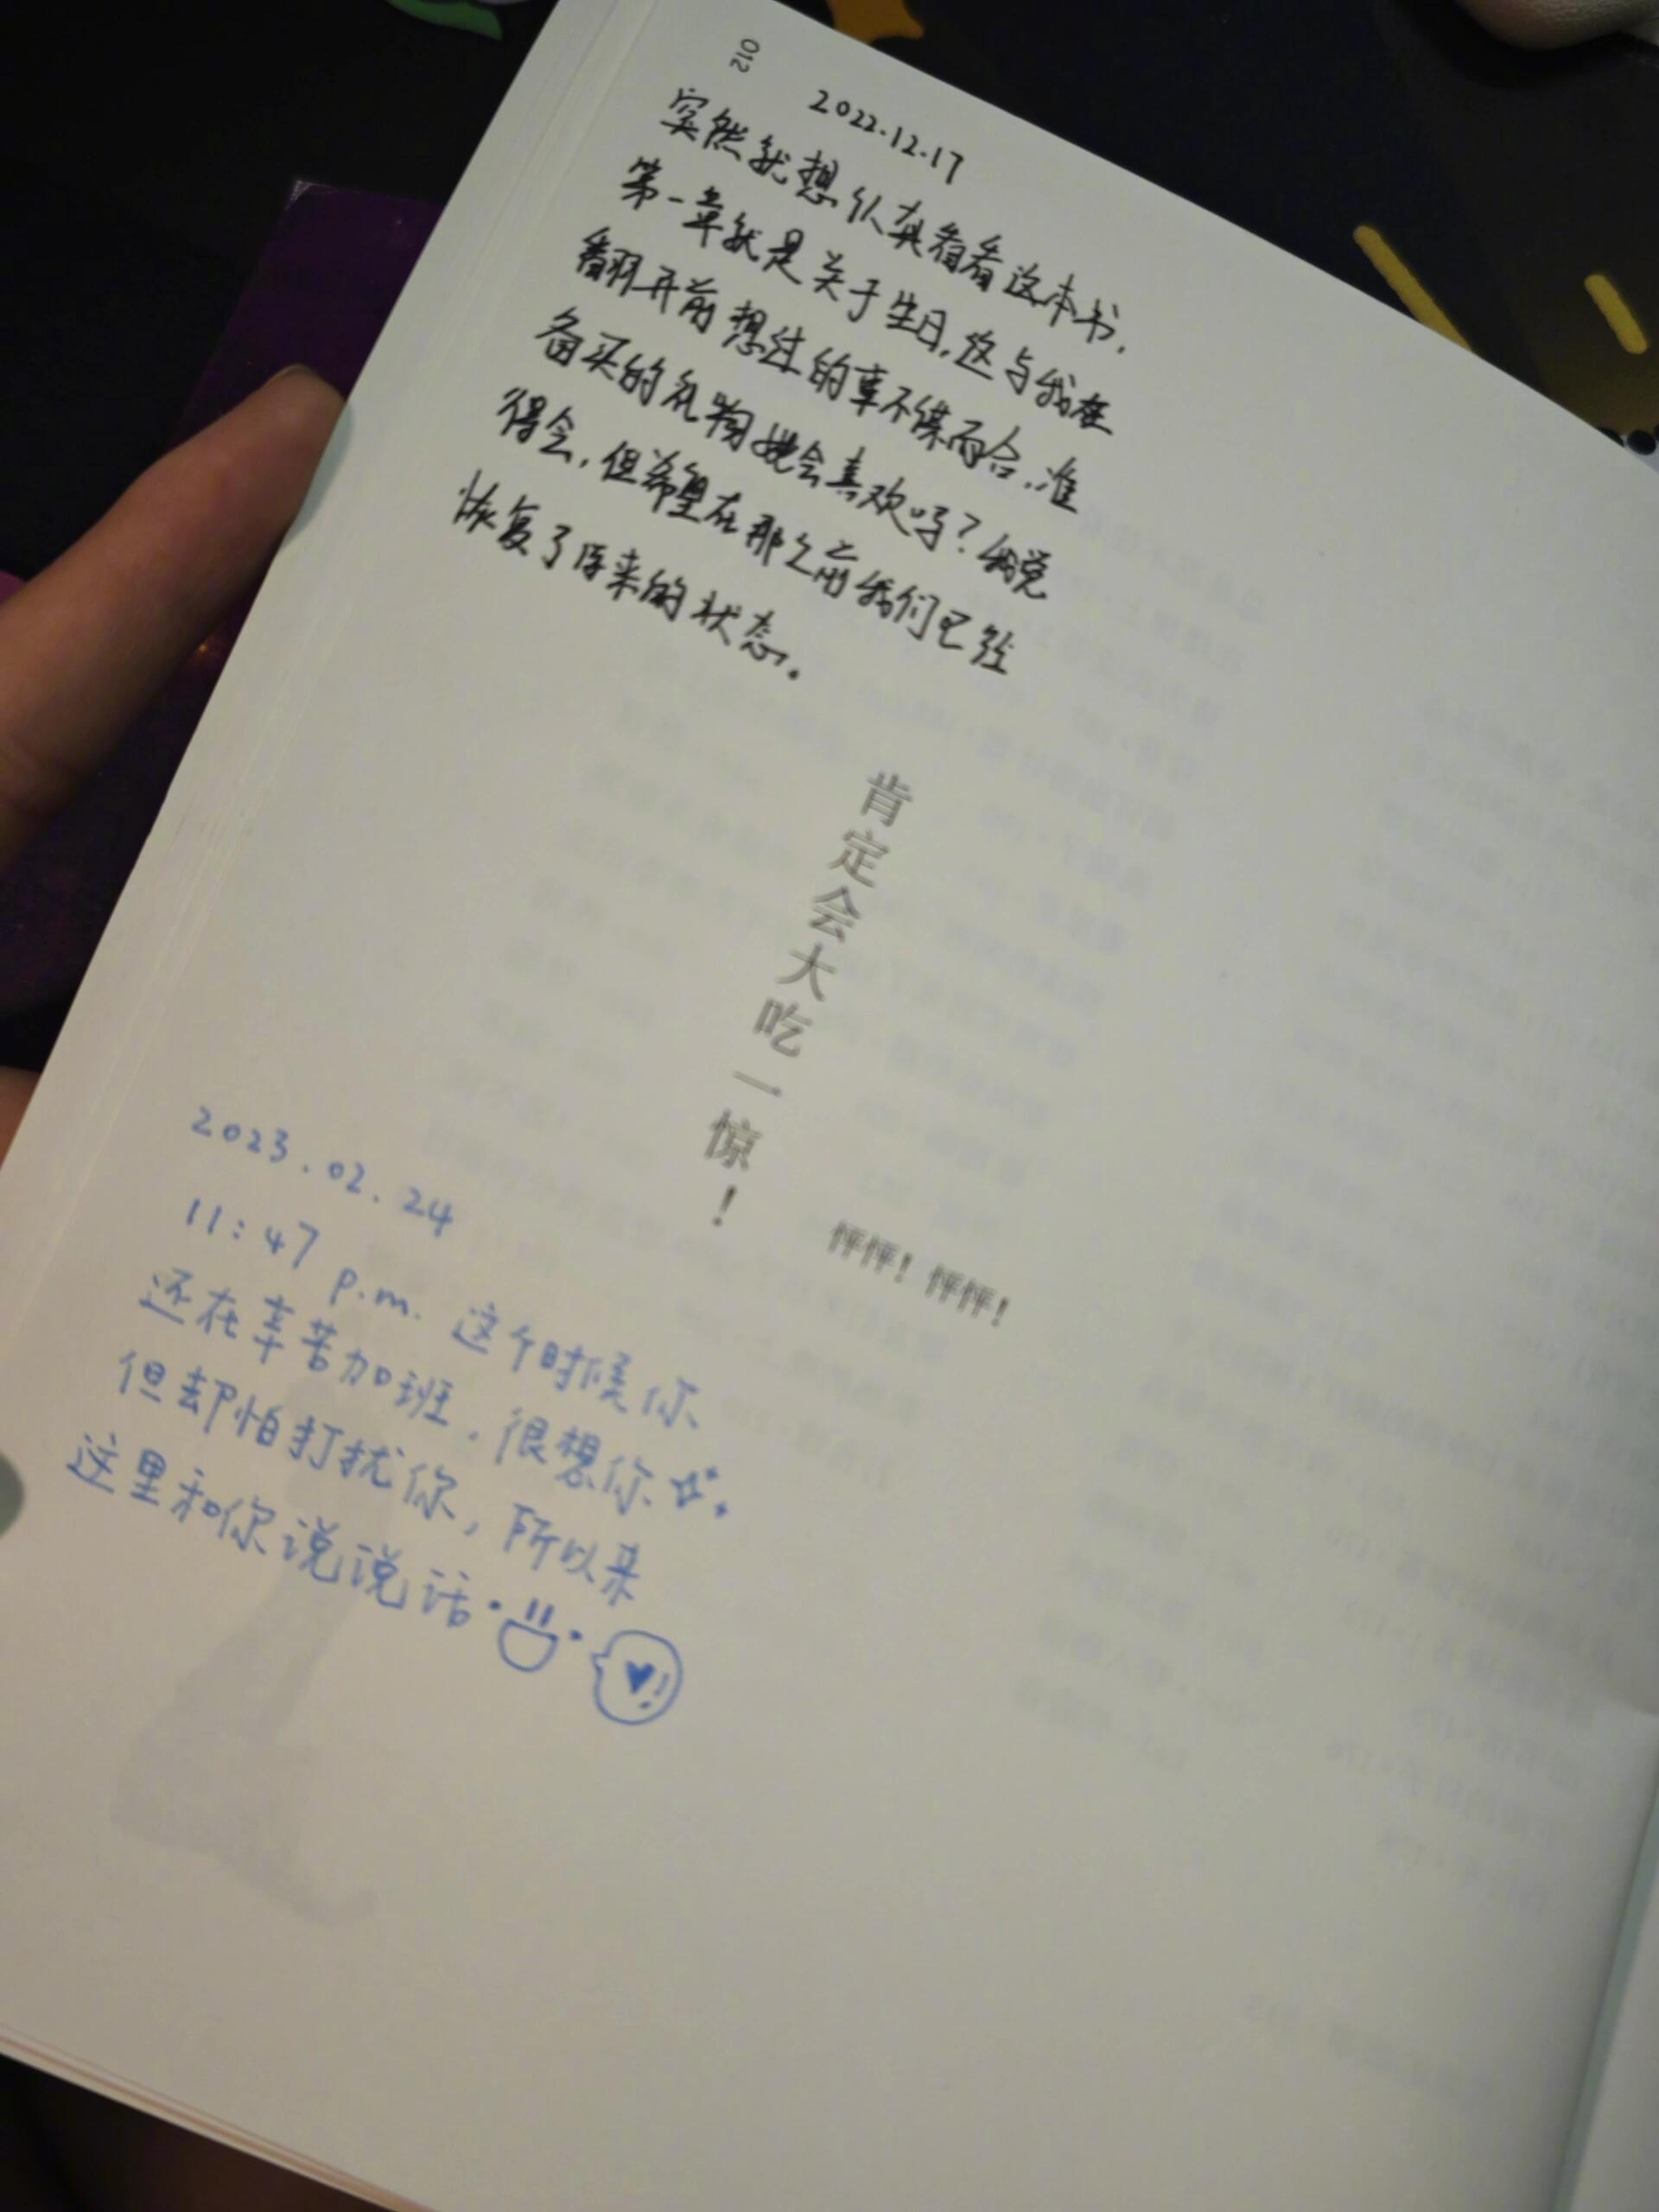 012
2022.12.17
突然就想认真看看这本书,
第一章就是关于生日,这与我在
翻开前想过的事不谋而合.准
备买的礼物她会喜欢吗?我觉
得会,但希望在那之前我们已经
恢复了原来的状态。
肯定会大吃一惊!
怦怦!怦怦!
2023.02.24
11:47 p.m. 这个时候你
还在辛苦加班,很想你
但却怕打扰你,所以来
这里和你说说话